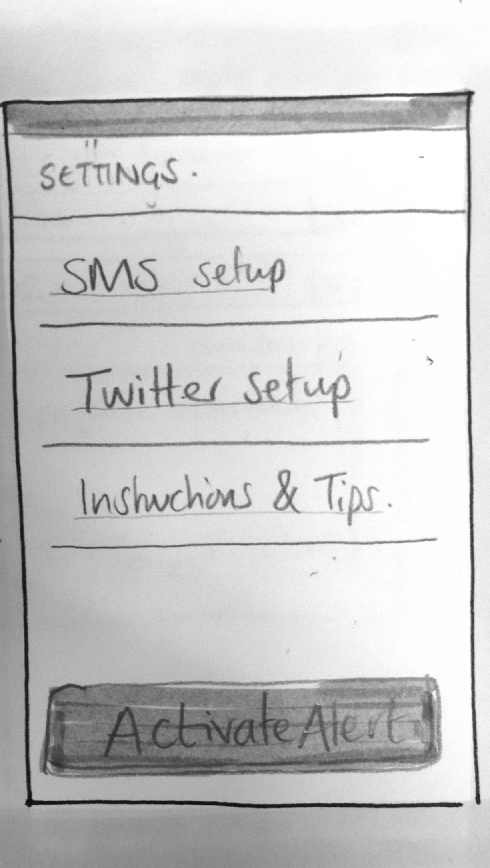 SETTINGS.
SMS setup
Twitter setup
Instructions & Tips.
Activate Alert